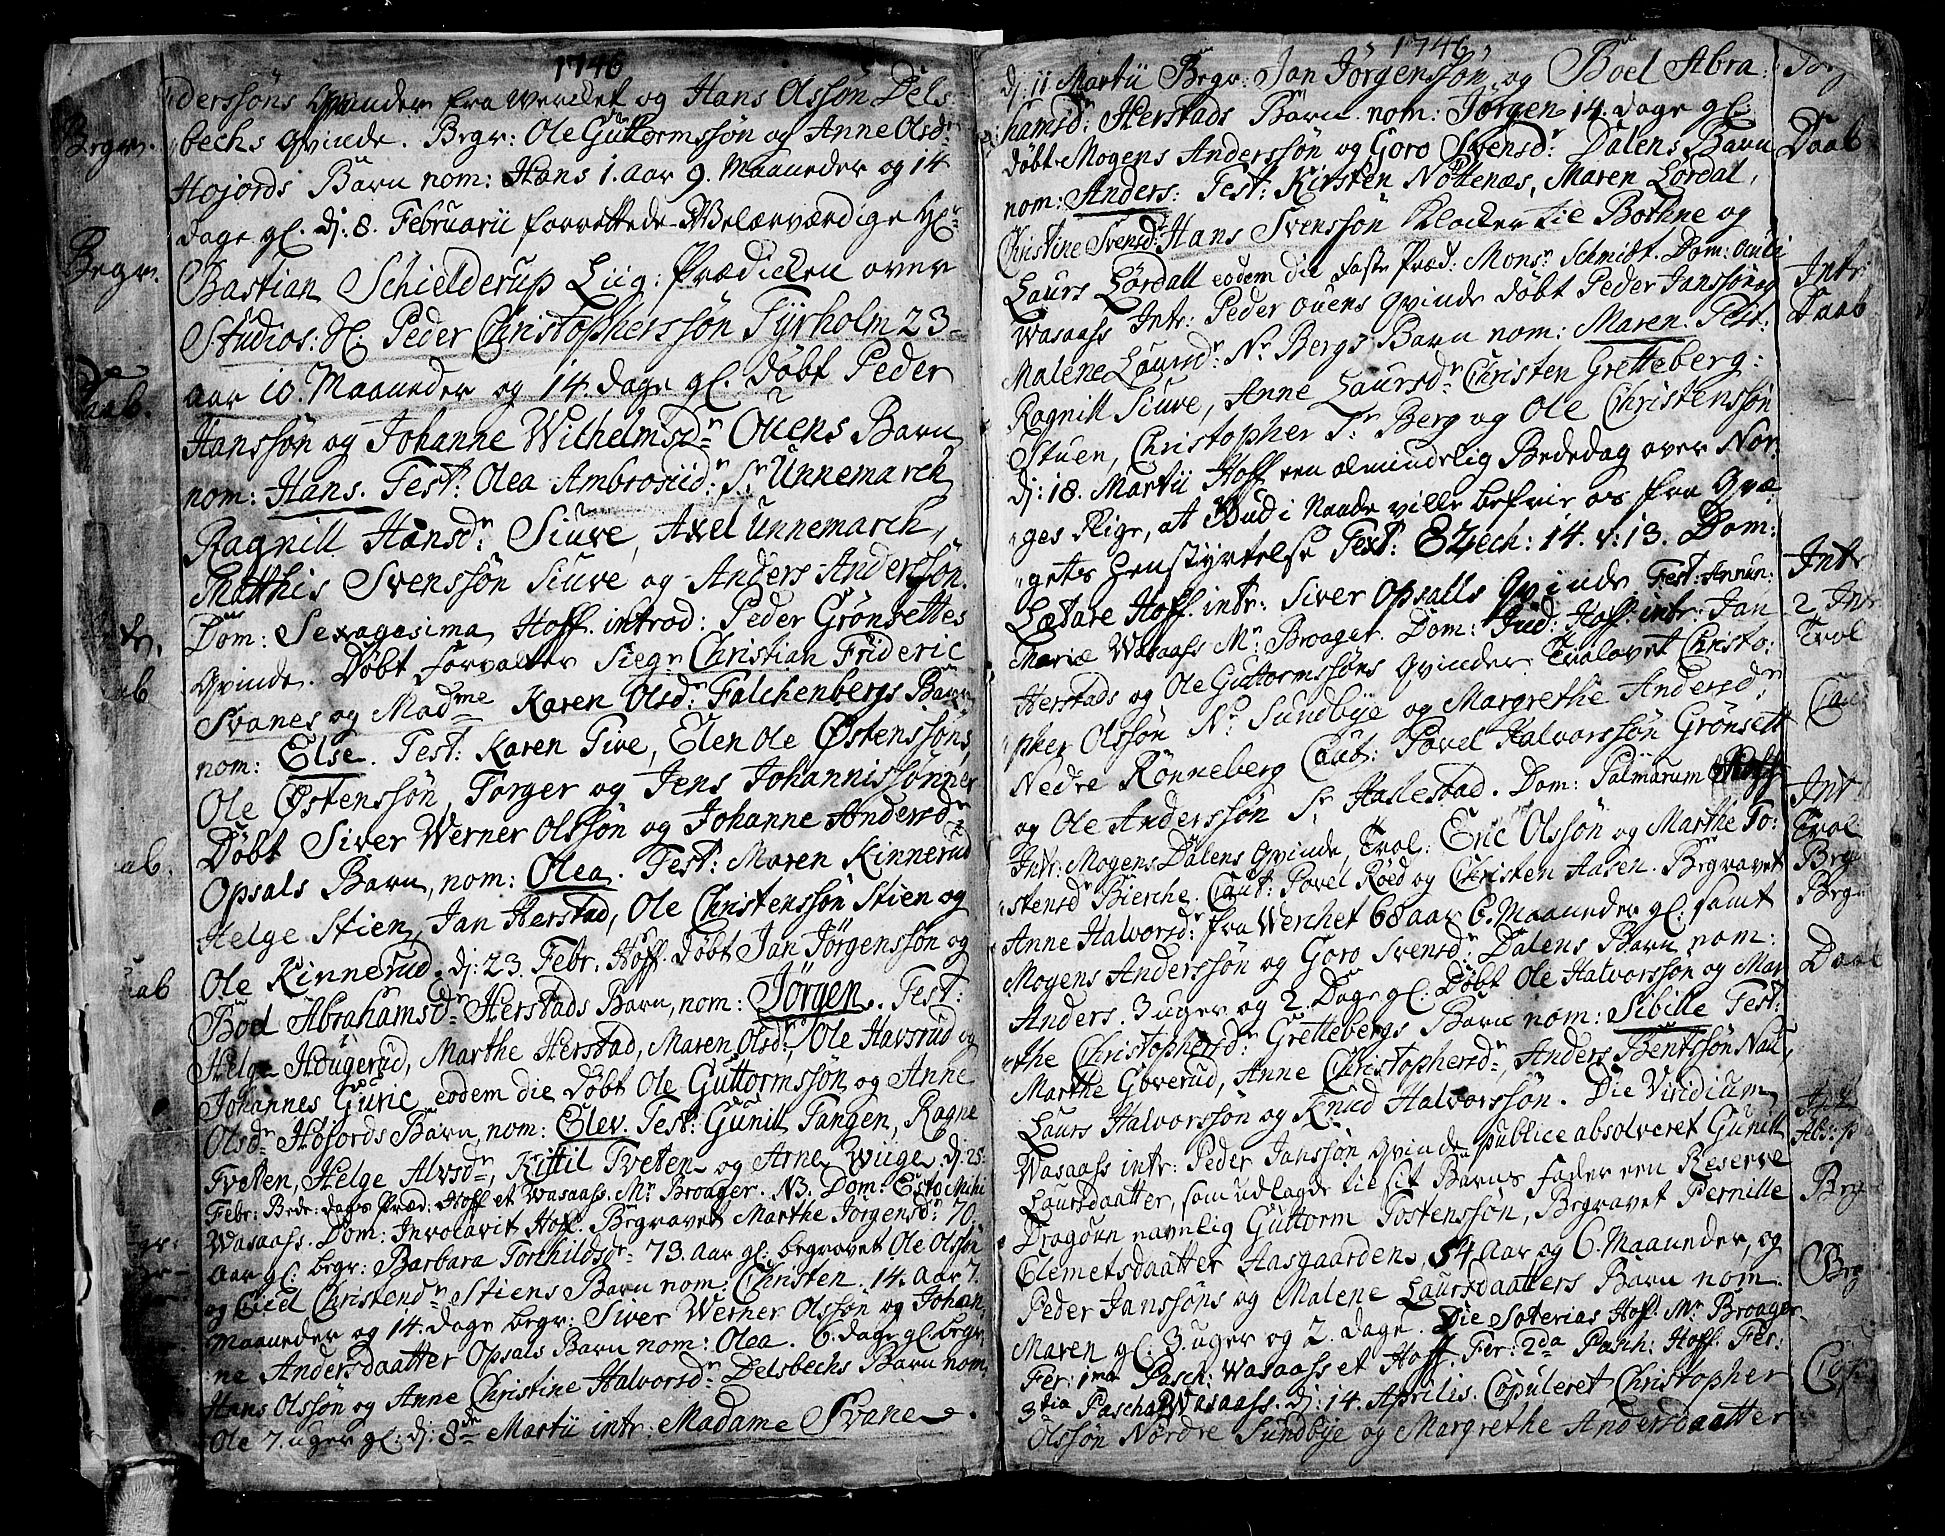 1746
derssöns Qvinder fra Werchet og Hans Olssön Dels:
Begr. bechs Qvinde. Begr: Ole Guttormssön og Anne Olsdr
Hojords Barn nom: Hans 1. Aar 9. Maaneder og 14
dage gl. dj: 8. Februarii forrettede Welærværdige Hr
Begr. Bastian Schielderup Liig: Prædicken over
Studios: Hr. Peder Christopherssön Tyrholm 23
Daab. aar 10. Maaneder og 14. dage gl. Döbt Peder
Hanssön og Johanne Wilhelmsdr Ouens Barn
nom: Hans. Test: Olea Ambrosiid: Sr Unnemarck
Ragnill Hansdr: Siuve, Axel Unnemarch,
Matthis Svenssön Siuve og Anders Anderssön.
Dom: Sexagesima Hoff. introd: Peder Grönsettes
Qvinde. Döbt Forvalter Siegr Christian Frideric
Svanes og Madme Karen Olsdr Falchenbergs Barn
nom: Else. Test: Karen Tive, Elen Ole Östenssöns,
Ole Östenssön, Torger og Jens Johannissönner
Döbt Siver Werner Olssön og Johanne Andersdr
Opsals Barn, nom: Olea. Test: Maren Kinnerud
Helge Stien, Jan Herstad, Ole Christenssön Stien og
Ole Kinnerud. dj: 23. Febr. Hoff. Döbt Jan Jörgenssön og
Boel Abrahamsdr Herstads Barn, nom: Jörgen. Test:
Helge Hougerud, Marthe Herstad, Maren Olsdr, Ole Havsrud og
Johannes Guric, eodem die Döbt Ole Guttormssön og Anne
Olsdr Hojords Barn, nom: Elev. Test: Gunill Tangen, Ragne
Tveten, Helge Alvsdr, Kittil Tveten og Arne Wuge. dj: 25.
Febr: Bede: dags Præd: Hoff et Wasaass. Mr Broager. NB. Dom: Esto Mihi
Wasaass. Dom: Invocavit Hoff. Begravet Marthe Jörgensdr 70.
Aar gl: begr: Barbara Torchildsdr 73. Aar gl: begravet Ole Olssön
og Christendr Stiens Barn nom: Christen. 14. Aar 7.
Maaneder og 14. dage begr: Siver Werner Olssön og Johan
ne Andersdaatter Opsals Barn nom: Olea. 6. dage gl. begr,
Hans Olssön og Anne Christine Halvorsdr Delsbechs Barn nom,
Ole 7. uger gl: dj: 8de Martii intr: Madame Svane.
1746
dj: 11 Martii Begr: Jan Jörgenssön og Boel Abra:
hamsd: Herstads Barn nom: Jörgen 14. dage gl:
Döbt Mogens Anderssön og Goro Svensdr: Dalens Barn Daab
nom: Anders: Test: Kirsten Nottenæs, Maren Lördal,
Christine Svensdr Hans Svenssön Klocker til Botkne og
Laurs Lördall eodem die Faste Præd: Monsr Schmidt. Dom: Oculi Intr:
Wasaass Intr: Peder Ouens Qvinde Döbt Peder Janssön og Daab
Malene Laursdr: Nr Bergs Barn nom: Maren. Test:
Ragnill Siuve, Anne Laursdr Christen Gretteberg:
Stuen, Christopher Sr Berg og Ole Christenssön
dj: 18. Martii Hoff een almindelig Bededag over Nor:
ges Rige, at Gud i Naade ville befrie os fra Qvæ
gets Henstyrtelse Text: Ezech: 14. v: 13. Dom:
Lætare Hoff. intr: Siver Opsalls Qvinde Fest: Annun: Intr
Mariæ Wasaass Mr Broager. Dom: Jud: Hoff. intr: Jan 2 Intr
Herstads og Ole Guttormssöns Qvinder Trolovet Christo: Trol
pher Olssön Nr Sundbye og Margrethe Andersdr,
Nedre Rönneberg Caut: Povel Halvorssön Grönsett
og Ole Anderssön Sr Hallestad. Dom: Palmarum Hoff
Intr: Mogens Dalens Qvinde, Trol: Eric Olssön og Marthe To: Trol
stensd Bierche. Caut: Povel Röed og Christen Aasen. Begravet Begr
Anne Halvorsdr fra Werchet 68 aar 6. Maaneder gl: samt
Mogens Anderssön og Goro Svensdr: Dalens Barn nom:
Anders. 3 uger og 2. Dage gl: Döbt Ole Halvorssön og Mar Daab
the Christophersdr Grettebergs Barn nom: Sibille Test:
Marthe Goverud, Anne Christophersdr, Anders Bentssön Nau,
Laurs Halvorssön og Knud Halvorssön. Die Viridium
Wasaass intr: Peder Janssön Qvinde publice absolveret Gunill
Laursdaatter, som udlagde til sit Barns Fader een Reserve
Dragoun navnlig Guttorm Tostenssön, Begravet Pernille
Clemetsdaatter Aasgaarden, 54 Aar og 6. Maaneder, og
Peder Janssöns og Malene Laursdaatters Barn nom.
Maren gl: 3. uger og 2. dage. Die Soterias Hoff. Mr Broager.
Fer: 1ma Pasch: Wasaass et Hoff. Fer: 2da Pasch: Hoff. Fer:
3tia Pascha Wasaass. dj: 14. Aprilis. Copuleret Christopher
Olssön Nordre Sundbye og Margrethe Andersdaatter